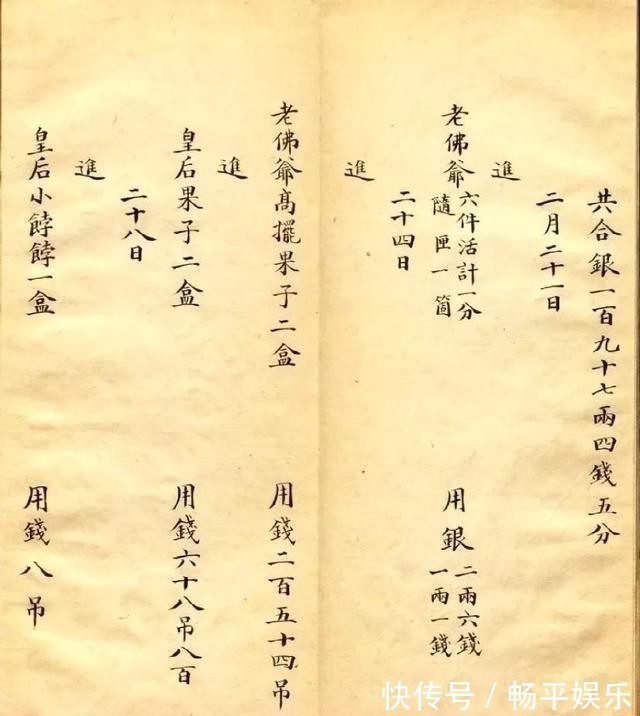 共合銀一百九十七兩四錢五分
二月二十一日
進
老佛爺六件活計一分
隨匣一箇
用銀二兩六錢
一兩一錢
二十四日
進
老佛爺高擺果子二盒
用錢二百五十四吊
進
皇后果子二盒
用錢六十八吊八百
二十八日
進
皇后小餑餑一盒
用錢八吊
快传号/畅平娱乐